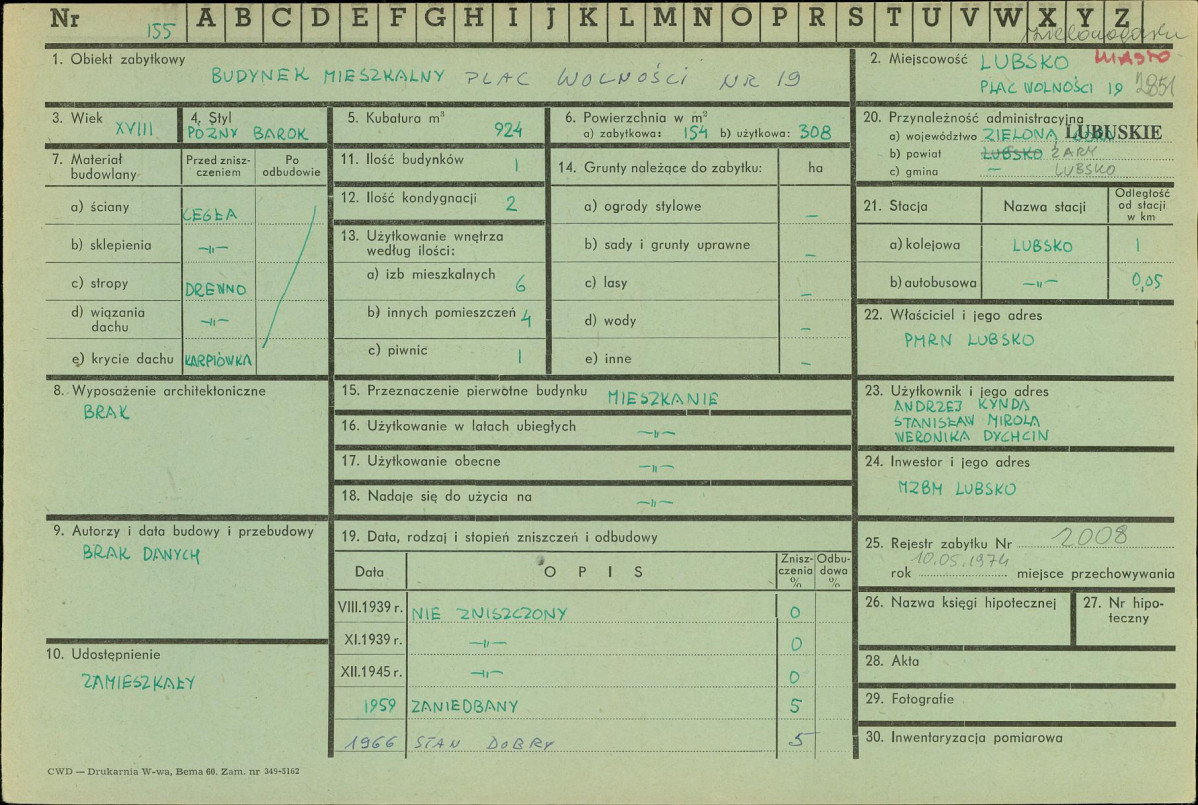 Nr 155 A B C D E F G H I J K L M N O P R S T U V W X Y Z
1. Obiekt zabytkowy
BUDYNEK MIESZKALNY PLAC WOLNOŚCI NR 19
2. Miejscowość LUBSKO MIASTO
PLAC WOLNOŚCI 19 2851
3. Wiek
XVIII
4. Styl
PÓŹNY BAROK
5. Kubatura m³
924
6. Powierzchnia w m²
a) zabytkowa: 154 b) użytkowa: 308
20. Przynależność administracyjna
a) województwo ZIELONA LUBUSKIE
b) powiat LUBSKO ŻARY
c) gmina — LUBSKO
7. Materiał budowlany
Przed znisz-
czeniem
Po
odbudowie
a) ściany CEGŁA
b) sklepienia —"—
c) stropy DREWNO
d) wiązania
dachu —"—
e) krycie dachu KARPIÓWKA
11. Ilość budynków 1
12. Ilość kondygnacji 2
13. Użytkowanie wnętrza
według ilości:
a) izb mieszkalnych 6
b) innych pomieszczeń 4
c) piwnic 1
14. Grunty należące do zabytku: ha
a) ogrody stylowe —
b) sady i grunty uprawne —
c) lasy —
d) wody —
e) inne —
21. Stacja Nazwa stacji
Odległość
od stacji
w km
a) kolejowa LUBSKO 1
b) autobusowa —"— 0,05
22. Właściciel i jego adres
PMRN LUBSKO
8. Wyposażenie architektoniczne
BRAK
15. Przeznaczenie pierwotne budynku MIESZKANIE
16. Użytkowanie w latach ubiegłych —"—
17. Użytkowanie obecne —"—
18. Nadaje się do użycia na —"—
23. Użytkownik i jego adres
ANDRZEJ KYNDA
STANISŁAW MIROLA
WERONIKA DYCHCIN
24. Inwestor i jego adres
MZBM LUBSKO
9. Autorzy i data budowy i przebudowy
BRAK DANYCH
19. Data, rodzaj i stopień zniszczeń i odbudowy
Data OPIS
Znisz-
czenia
%
Odbu-
dowa
%
VIII.1939 r. NIE ZNISZCZONY 0
XI.1939 r. —"— 0
XII.1945 r. —"— 0
1959 ZANIEDBANY 5
1966 STAN DOBRY 5
25. Rejestr zabytku Nr 2008
10.05.1974
rok miejsce przechowywania
26. Nazwa księgi hipotecznej
27. Nr hipo-
teczny
10. Udostępnienie
ZAMIESZKAŁY
28. Akta
29. Fotografie
30. Inwentaryzacja pomiarowa
CWD — Drukarnia W-wa, Bema 60. Zam. nr 349-5162